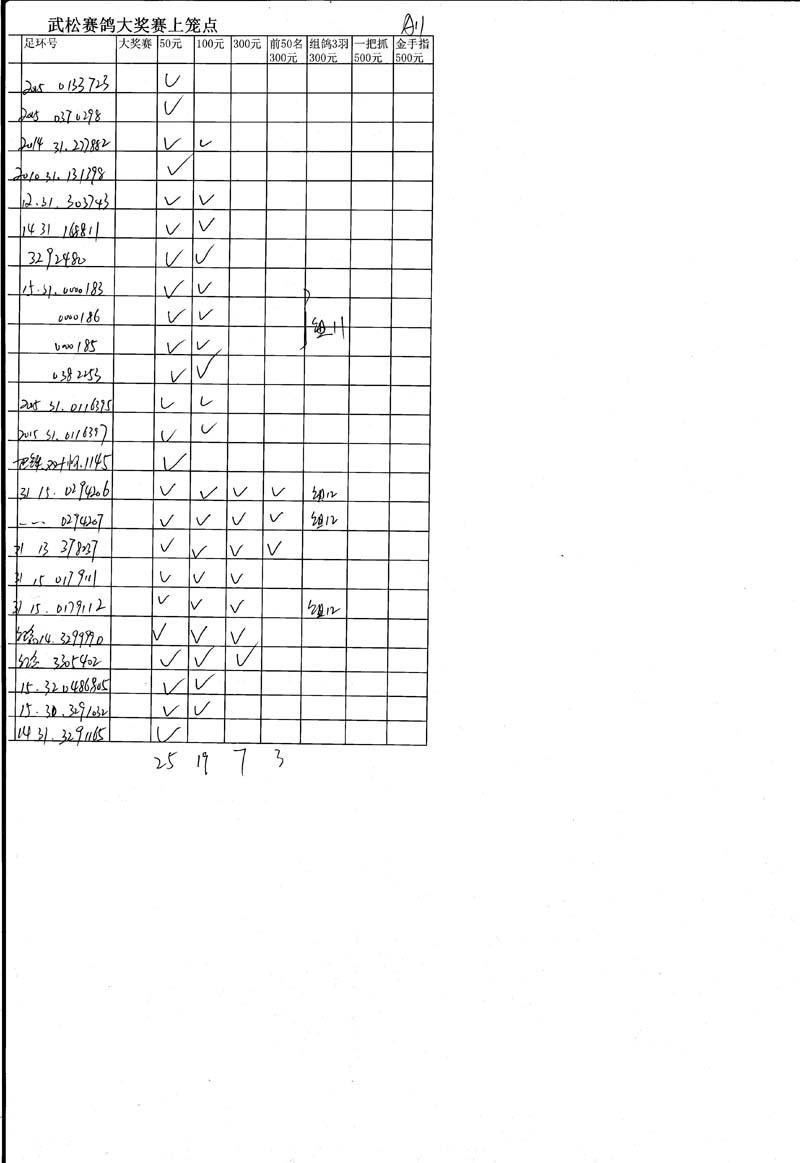 武松赛鸽大奖赛上笼点 A11
足环号 大奖赛 50元 100元 300元 前50名300元 组鸽3羽300元 一把抓500元 金手指500元
2015 0133723 ✓
2015 0370298 ✓
2014 31.277882 ✓ ✓
2010.31.131398 ✓
12.31.303743 ✓ ✓
14 31 168811 ✓ ✓
3292480 ✓ ✓
15.31.0000183 ✓ ✓
0000186 ✓ ✓ 组11
0000185 ✓ ✓
0382253 ✓ ✓
2015 31.0116395 ✓ ✓
2015 31.0116397 ✓ ✓
1145 ✓
31 15.0294206 ✓ ✓ ✓ ✓ 组12
0294207 ✓ ✓ ✓ ✓ 组12
31 13 378237 ✓ ✓ ✓ ✓
31 15 0179111 ✓ ✓ ✓
31 15.0179112 ✓ ✓ ✓ 组12
14.3299990 ✓ ✓ ✓
3305402 ✓ ✓ ✓
15.320486805 ✓ ✓
15.30.3291032 ✓ ✓
14 31.3291165 ✓
25 19 7 3